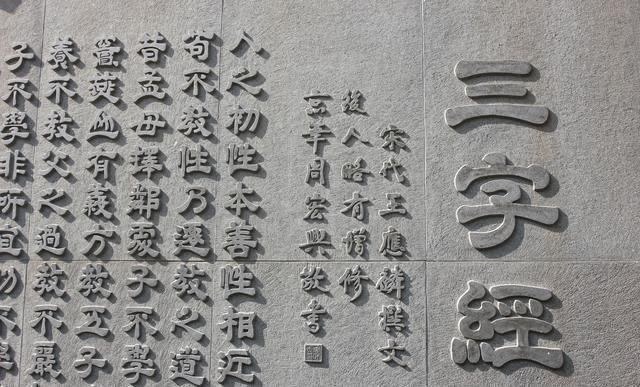 三字經
宋代王應麟撰文
後人略有增修
年周宏興敬書
人之初性本善性相近
苟不教性乃遷教之道
昔孟母擇鄰處子不學
竇燕山有義方教五子
養不教父之過教不嚴
子不學非所宜幼不